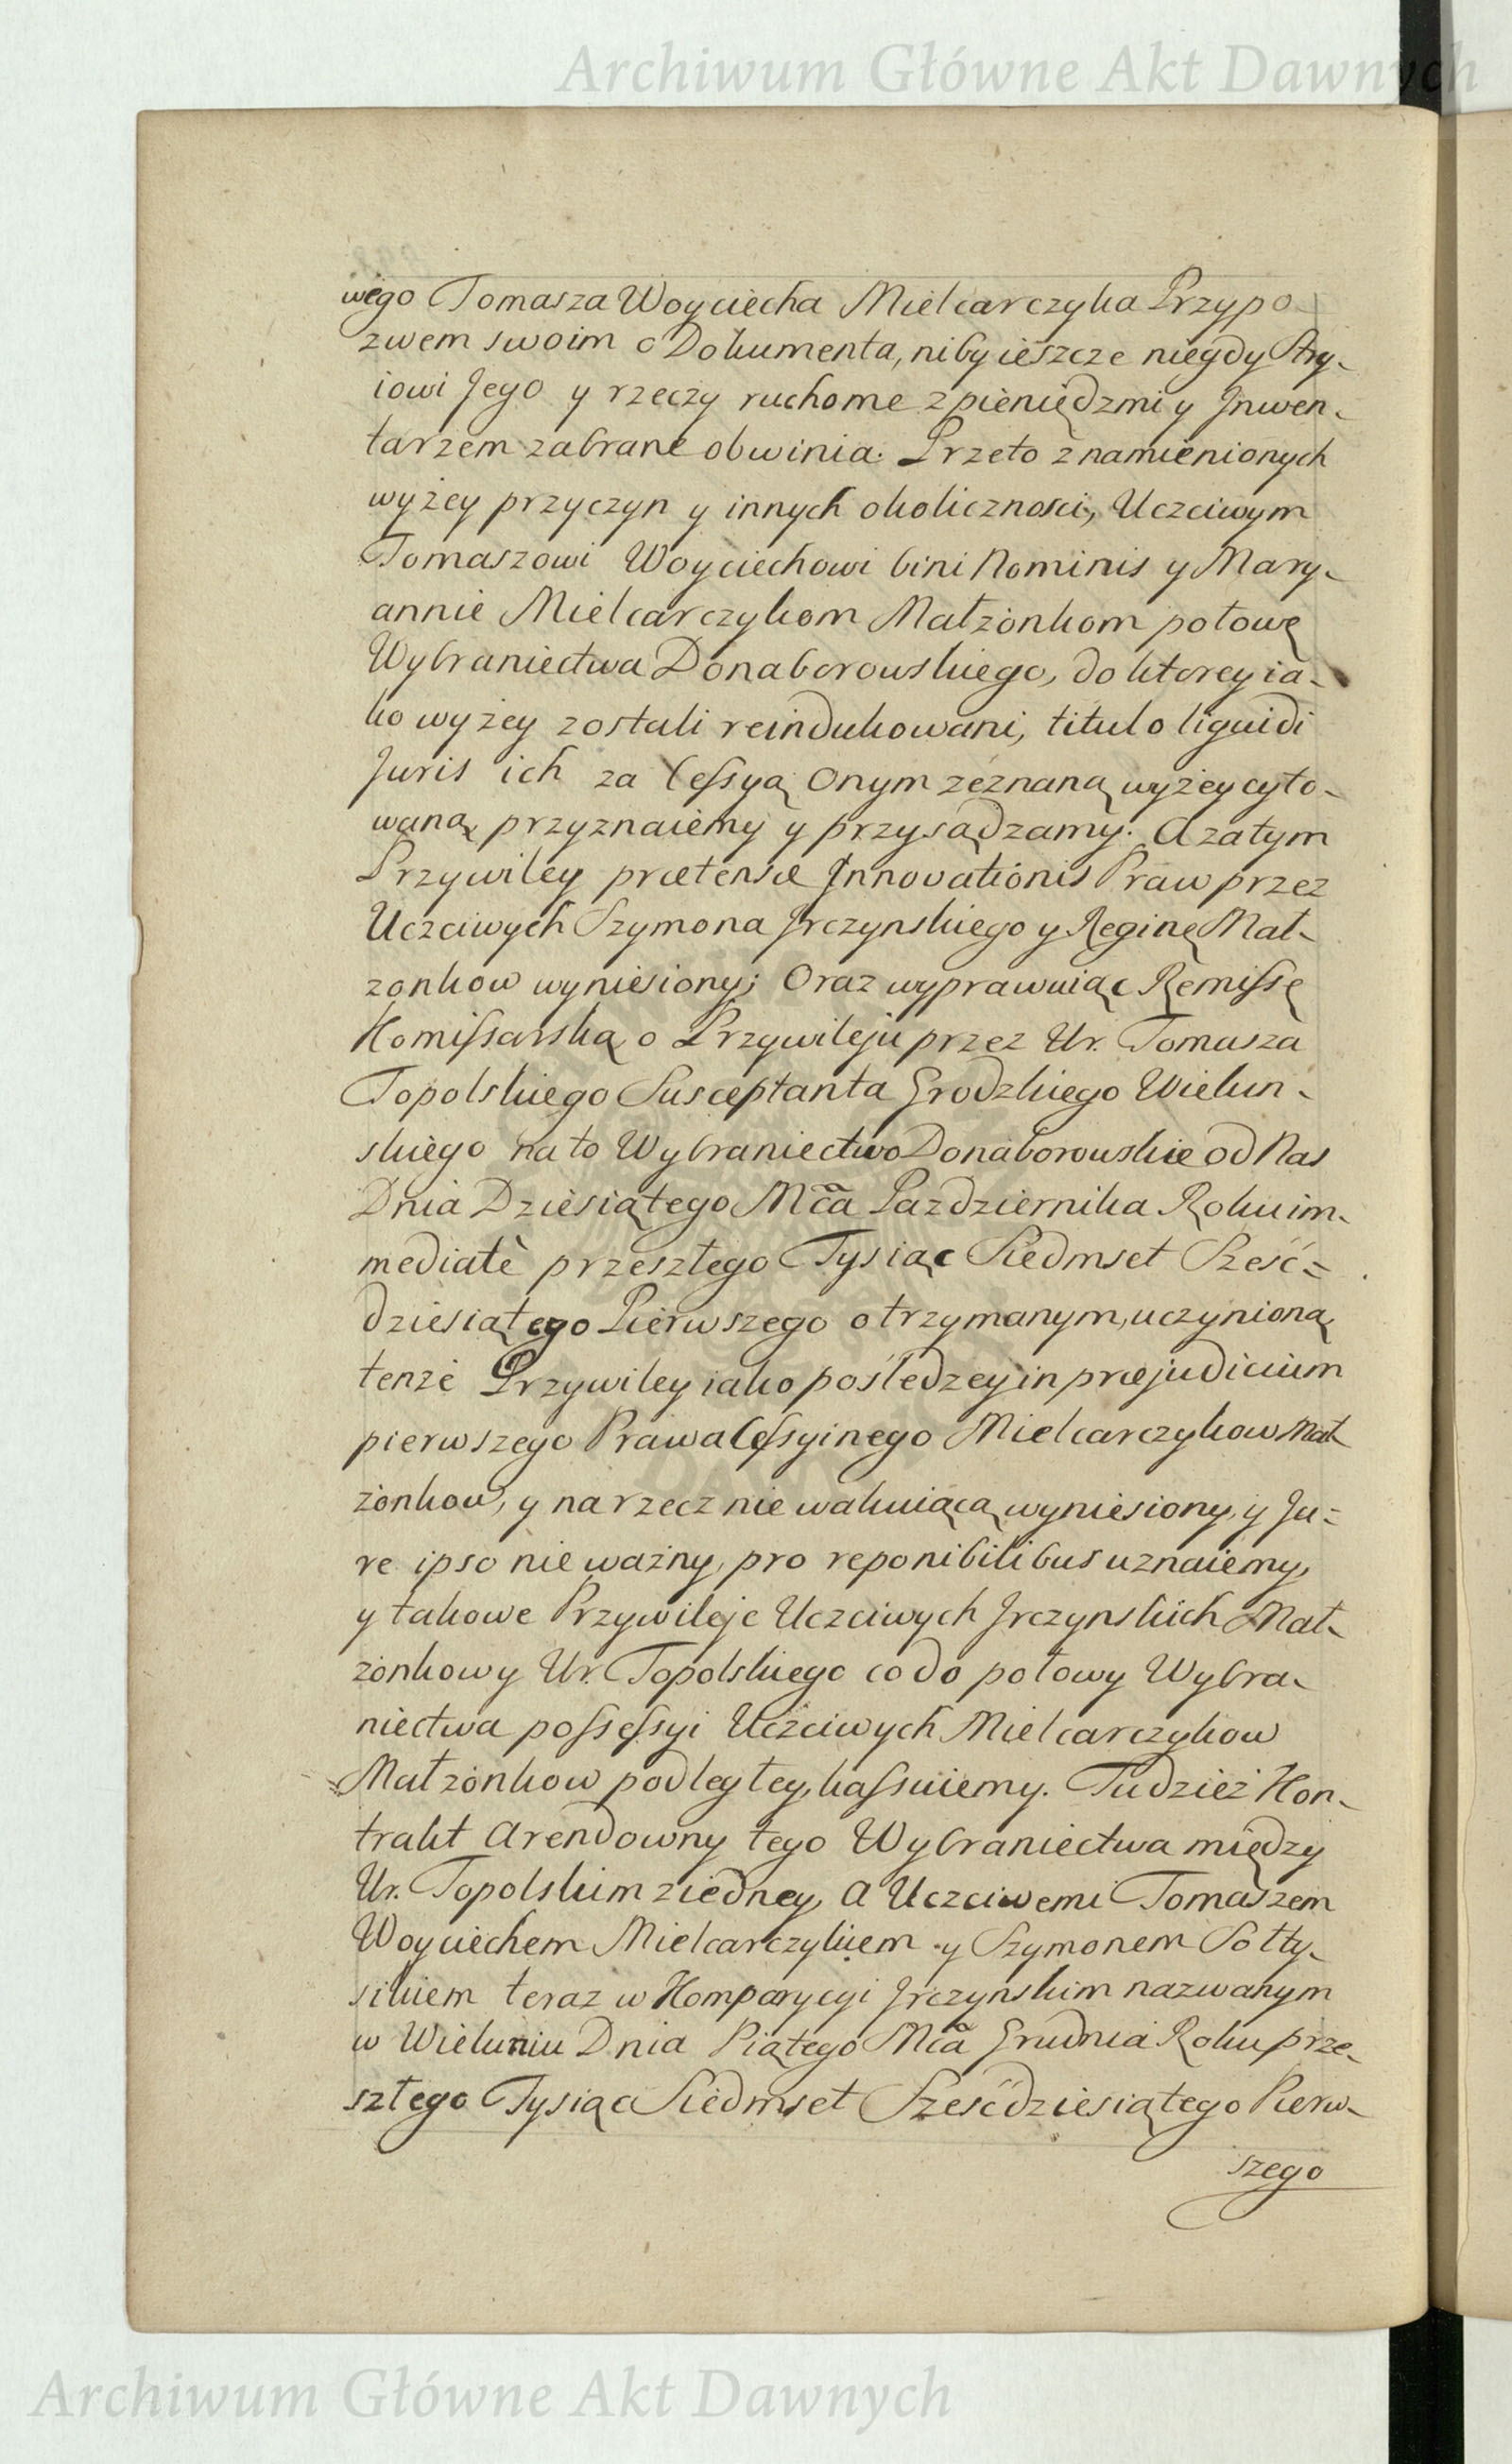 Archiwum Główne Akt Dawnych
wego Tomasza Woyciecha Mielcarczyka Przypo-
zwem swoim o Dokumenta, niby ieszcze niegdy Stry-
iowi Jego y rzeczy ruchome z pieniędzmi y Jnwen-
tarzem zabrane obwinia. Przeto z namienionych
wyżey przyczyn y innych okoliczności, Uczciwym
Tomaszowi Woyciechowi bini Nominis y Mary-
annie Mielcarczykom Małżonkom połowę
Wybraniectwa Donaborowskiego, do ktorey ia-
ko wyżey zostali reindukowani, titulo liquidi
Juris ich za Cessyą Onym zeznaną wyżey cyto-
waną przyznaiemy y przysądzamy. A zatym
Przywiley prætensæ Jnnovationis Praw przez
Uczciwych Szymona Jrczynskiego y Reginę Mał-
zonkow wyniesiony; Oraz wyprawuiąc Remissę
Komissarską o Przywileju przez Ur. Tomasza
Topolskiego Susceptanta Grodzkiego Wielun-
skiego na to Wybraniectwo Donaborowskie od Nas
Dnia Dziesiątego Mca Pazdziernika Roku im-
mediatè przeszłego Tysiąc Siedmset Sześć=
dziesiątego Pierwszego otrzymanym, uczynioną
tenże Przywiley iako pośledzey in præjudicium
pierwszego Prawa Cessyinego Mielcarczykow Mał
żonkow, y na rzecz nie wakuiącą wyniesiony, y Ju=
re ipso nie ważny, pro reponibilibus uznaiemy,
y takowe Przywileje Uczciwych Jrczynskich Mał-
żonkow y Ur. Topolskiego co do połowy Wybra-
niectwa possessyi Uczciwych Mielcarczykow
Małżonkow podległey, kassuiemy. Tudzież Kon-
trakt Arendowny tego Wybraniectwa między
Ur. Topolskim z iedney, a Uczciwemi Tomaszem
Woyciechem Mielcarczykiem y Szymonem Sołty-
sikiem teraz w Komparycyi Jrczynskim nazwanym
w Wieluniu Dnia Piątego Mca Grudnia Roku prze-
szłego Tysiąc Siedmset Sześćdziesiątego Pierw-
szego
Archiwum Główne Akt Dawnych